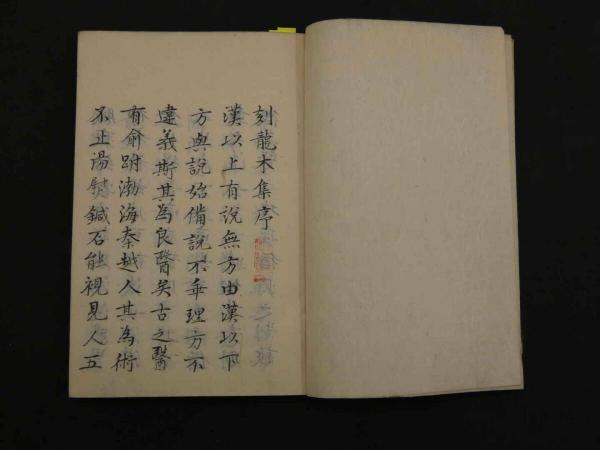 刻龍木集序
漢以上有說無方由漢以下
方與說始備說不乖理方不
違義斯其為良醫矣古之醫
有俞跗渤海秦越人其為術
不止湯熨鍼石能視見人五